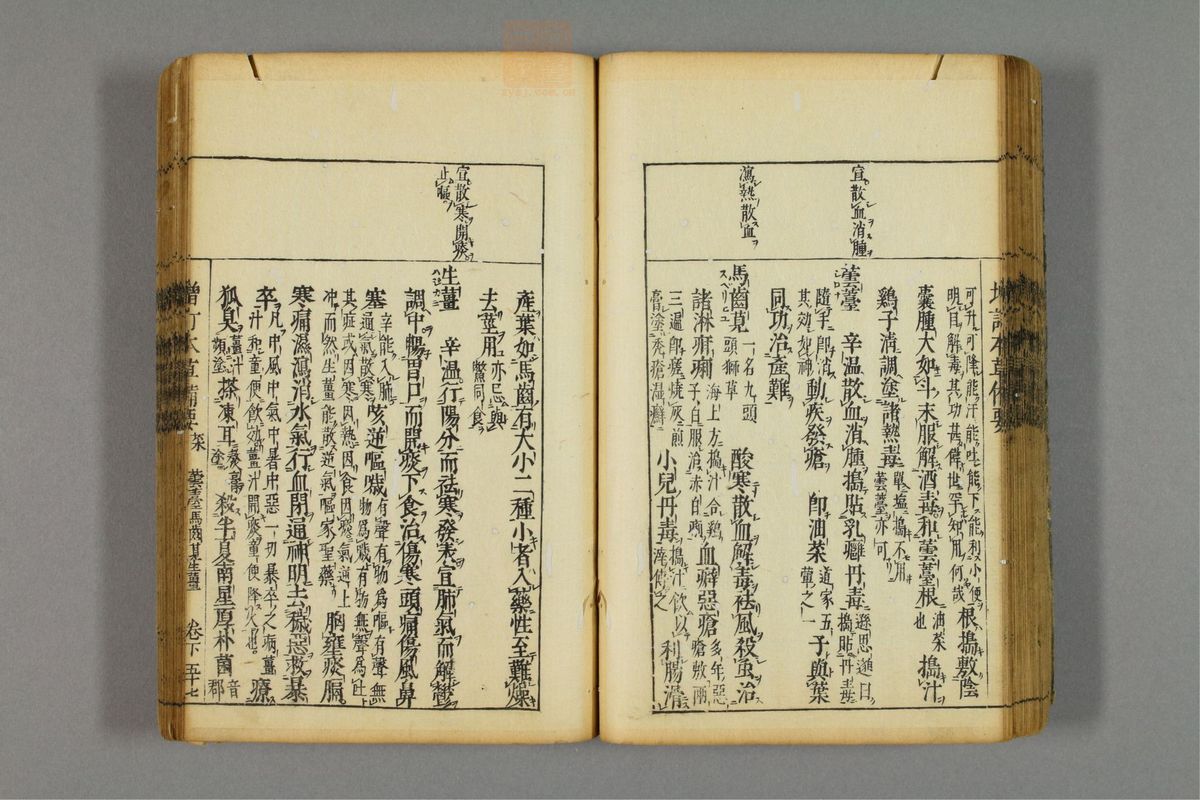 宜散血消腫
瀉熱散血
可升可降能汗能吐能下能利小便
明目解毒其功甚偉世罕知用何哉
根搗敷陰
囊腫大如斗末服解酒毒和蕓薹根
油菜也
搗汁
鷄子清調塗諸熱毒
單鹽搗不用
蕓薹亦可
蕓薹
辛温散血消腫搗貼乳癰丹毒
孫思邈曰
搗貼丹毒
隨手即消
其効如神
動疾發瘡
即油菜
道家五
葷之一
子與葉
同功治產難
馬齒莧
一名九頭
頭獅草
酸寒散血解毒祛風殺虫治
諸淋疳痢
海上方搗汁合鷄
子白服治赤白痢
血癖惡瘡
多年惡
瘡敷兩
三遍即瘥燒灰煎
膏塗禿瘡濕癬
小兒丹毒
搗汁飲以
滓傅之
利腸滑
宜散寒開痰
止嘔
產葉如馬齒有大小二種小者入藥性至難燥
去莖用
亦忌與
鱉同食
生薑
辛温行陽分而祛寒發表宣肺氣而解鬱
調中暢胃口而開痰下食治傷寒頭痛傷風鼻
塞
辛能入肺
通氣散寒
咳逆嘔噦
有聲有物爲嘔有聲無
物爲噦有物無聲爲吐
其症或因寒因熱因食因痰氣逆上
冲而然生薑能散逆氣嘔家聖藥
胸壅痰膈
寒痛濕瀉消水氣行血閉通神明去穢惡救暴
卒
凡中風中氣中暑中惡一切暴卒之病薑
汁和童便飲効薑汁開痰童便降火也
療
狐臭
薑汁
頻塗
搽凍耳
熬膏
塗
殺半夏南星厚朴菌
音
郡
增訂本草備要
菜
蕓薹馬齒莧生薑
卷下
五十七